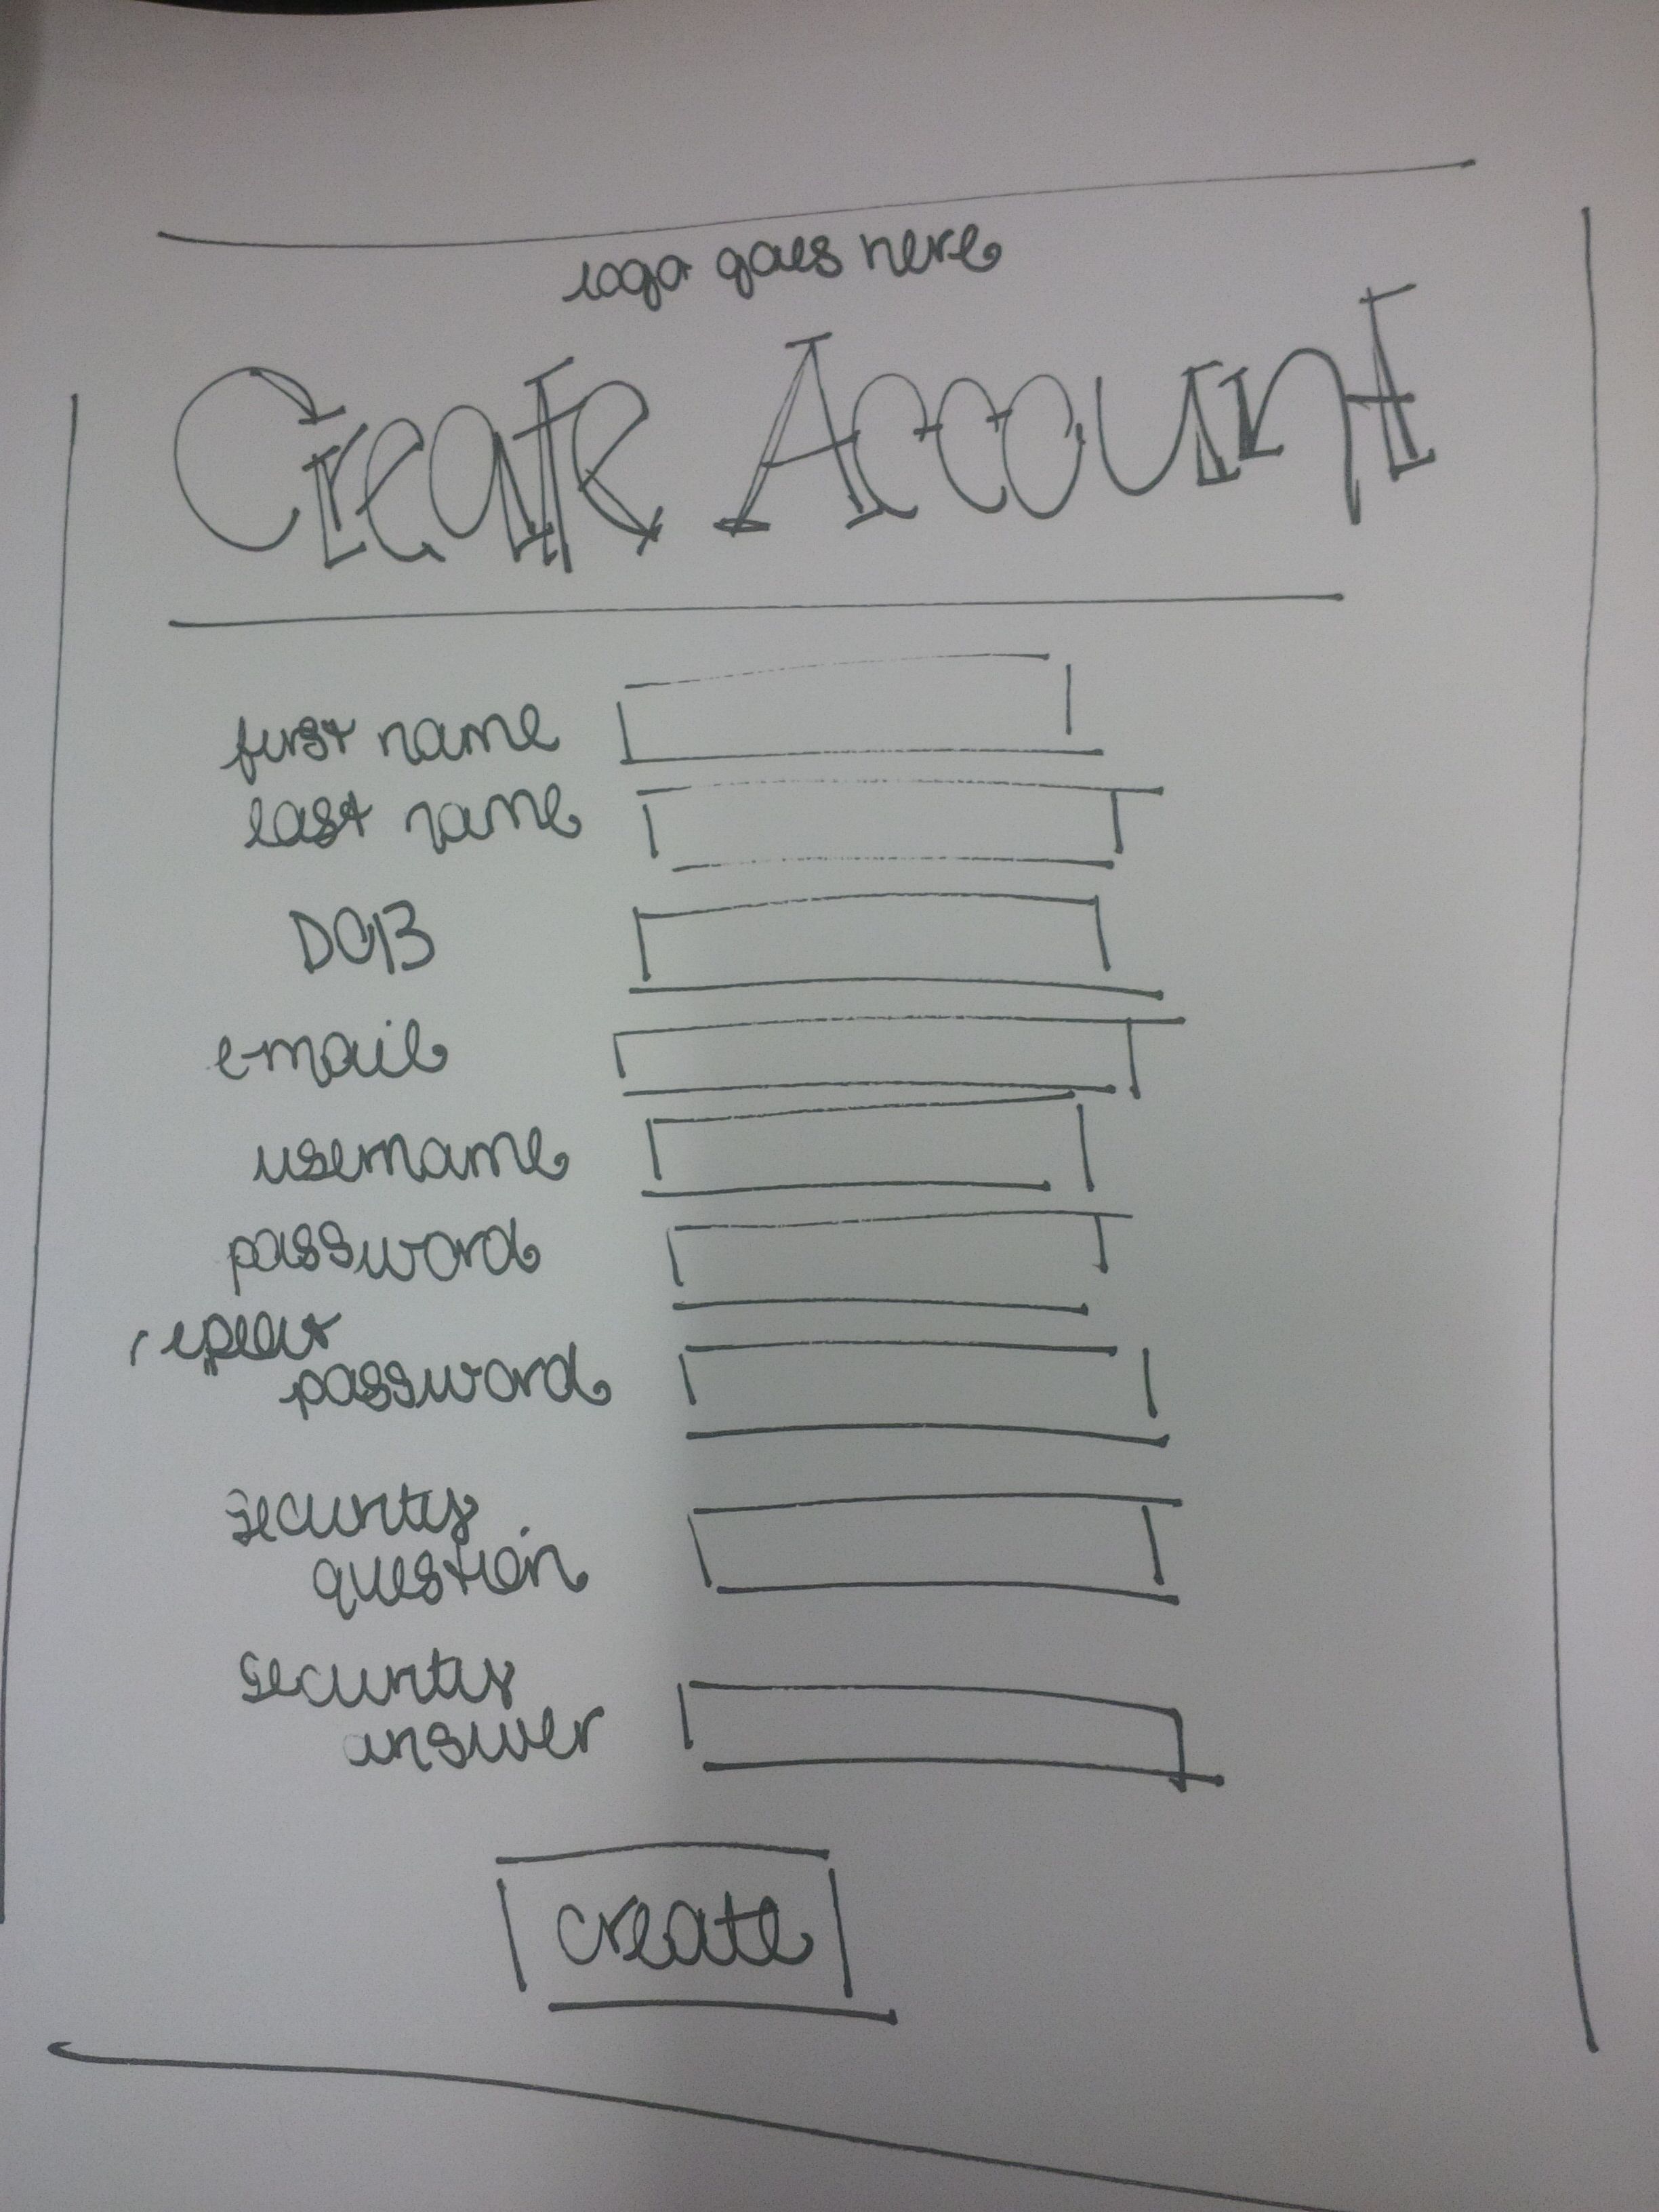 logo goes here
Create Account
first name
last name
DOB
e-mail
username
password
repeat
password
security
question
security
answer
create